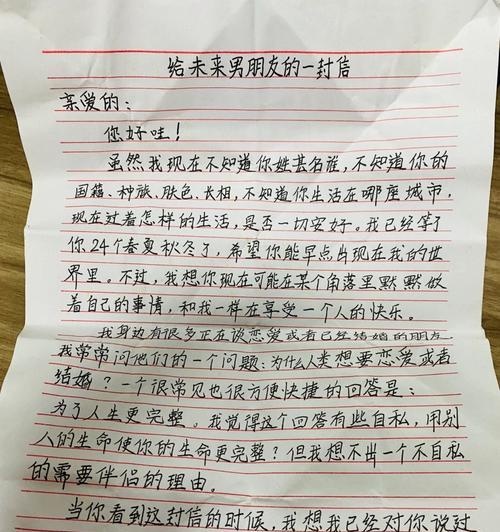 给未来男朋友的一封信
亲爱的：
您好哇！
虽然我现在不知道你姓甚名谁，不知道你的
国籍、种族、肤色、长相，不知道你生活在哪座城市，
现在过着怎样的生活，是否一切安好。我已经等了
你24个春夏秋冬了，希望你能早点出现在我的世
界里。不过，我想你现在可能在某个角落里默默做
着自己的事情，和我一样在享受一个人的快乐。
我身边有很多正在谈恋爱或者已经结婚的朋友，
我常常问他们的一个问题：为什么人类想要恋爱或者
结婚？一个很常见也很方便快捷的回答是：
为了人生更完整。我觉得这个回答有些自私，用别
人的生命使你的生命更完整？但我想不出一个不自私
的需要伴侣的理由。
当你看到这封信的时候，我想我已经对你说过